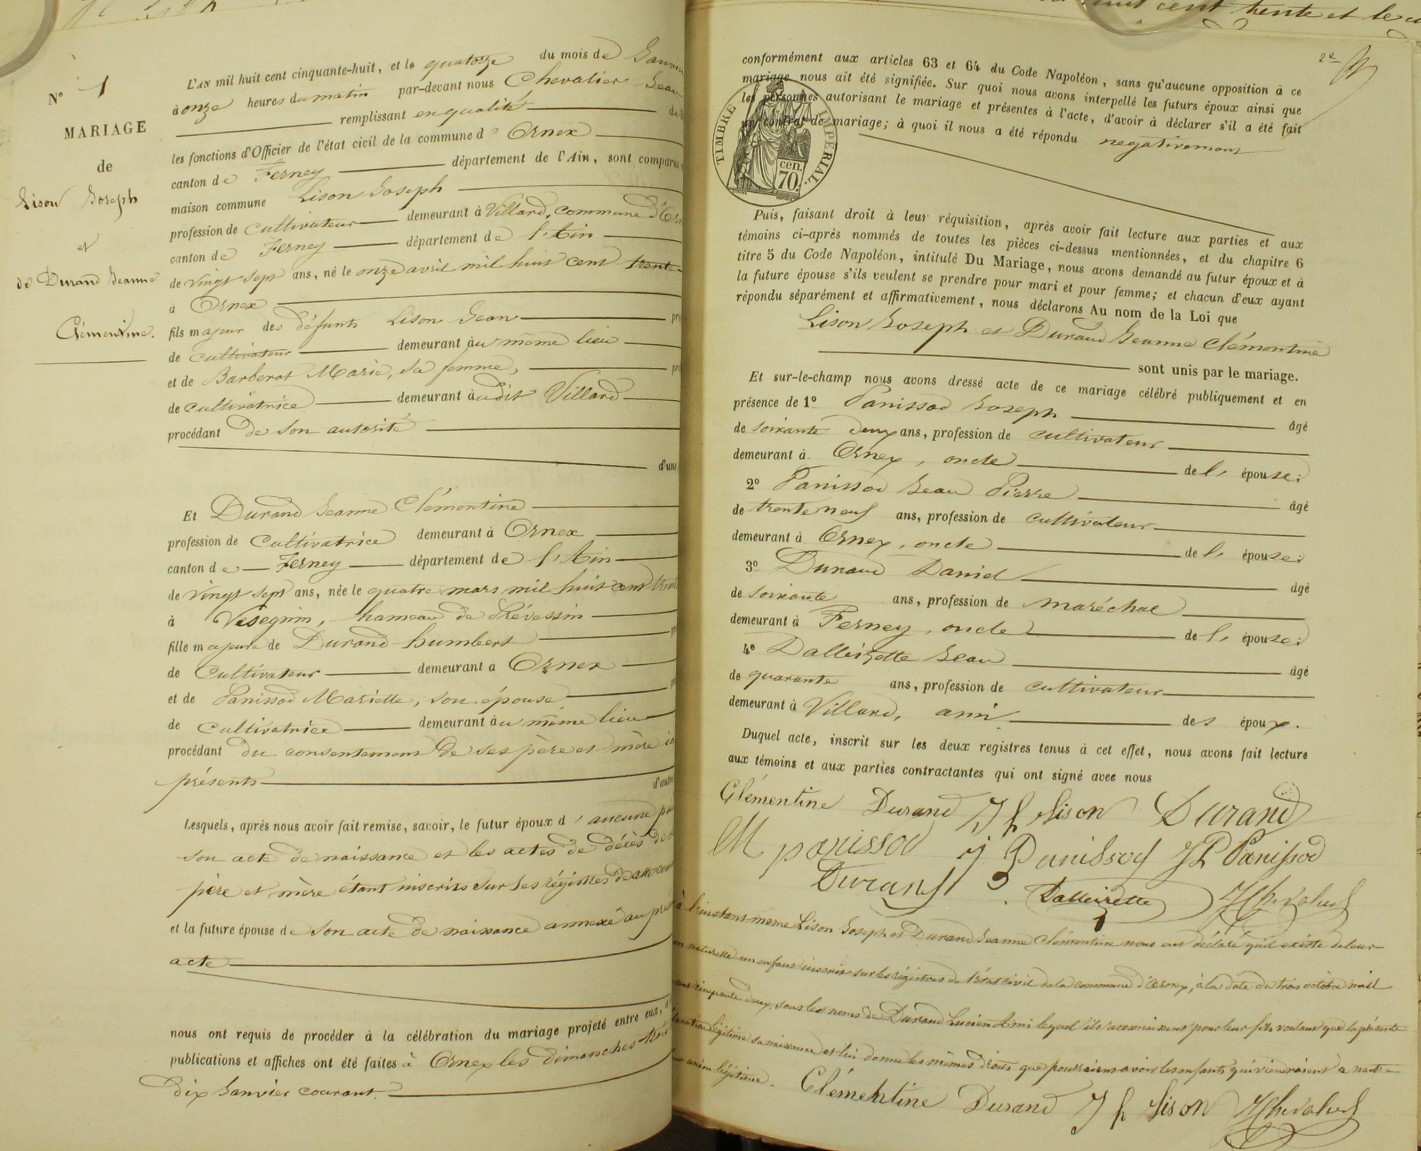 N° 1
MARIAGE
de
Lison Joseph
et
de Durand Jeanne
Clémentine.
L'AN mil huit cent cinquante-huit, et le quatorze du mois de
à onze heures du matin par-devant nous Chevalier Jean
remplissant en qualité
les fonctions d'Officier de l'état civil de la commune d'Ornex
canton de Ferney département de l'Ain, sont comparus
maison commune Lison Joseph
profession de cultivateur demeurant à Villard, commune d'
canton de Ferney département de l'Ain
de vingt sept ans, né le onze avril mil huit cent trente
à Ornex
fils majeur des défunts Lison Jean
de cultivateur demeurant au même lieu
et de Barberat Marie, sa femme,
de cultivatrice demeurant audit Villard
procédant de son autorité
d'une
Et Durand Jeanne Clémentine
profession de cultivatrice demeurant à Ornex
canton de Ferney département de l'Ain
de vingt sept ans, née le quatre mars mil huit cent
à Vésegnin, hameau de Prévessin
fille majeure de Durand Humbert
de cultivateur demeurant à Ornex
et de Panissod Mariette, son épouse
de cultivatrice demeurant au même lieu
procédant du consentement de ses père et mère
présents d'autre
Lesquels, après nous avoir fait remise, savoir, le futur époux d'aucune
son acte de naissance et les actes de décès de
père et mère étant inscrits sur les régistres de
et la future épouse de son acte de naissance annexé au
acte
nous ont requis de procéder à la célébration du mariage projeté entre eux,
publications et affiches ont été faites à Ornex les dimanches
dix Janvier courant.
2e
conformément aux articles 63 et 64 du Code Napoléon, sans qu'aucune opposition à ce
mariage nous ait été signifiée. Sur quoi nous avons interpellé les futurs époux ainsi que
les personnes autorisant le mariage et présentes à l'acte, d'avoir à déclarer s'il a été fait
un contrat de mariage; à quoi il nous a été répondu négativement
TIMBRE IMPÉRIAL
cen.
70.
Puis, faisant droit à leur réquisition, après avoir fait lecture aux parties et aux
témoins ci-après nommés de toutes les pièces ci-dessus mentionnées, et du chapitre 6
titre 5 du Code Napoléon, intitulé Du Mariage, nous avons demandé au futur époux et à
la future épouse s'ils veulent se prendre pour mari et pour femme; et chacun d'eux ayant
répondu séparément et affirmativement, nous déclarons Au nom de la Loi que
Lison Joseph et Durand Jeanne Clémentine
sont unis par le mariage.
Et sur-le-champ nous avons dressé acte de ce mariage célébré publiquement et en
présence de 1° Panissod Joseph âgé
de soixante deux ans, profession de cultivateur
demeurant à Ornex, oncle de l' épouse;
2° Panissod Jean Pierre âgé
de trente neuf ans, profession de cultivateur
demeurant à Ornex, oncle de l' épouse;
3° Durand Daniel âgé
de soixante ans, profession de maréchal
demeurant à Ferney, oncle de l' épouse;
4° Dalleizette Jean âgé
de quarante ans, profession de cultivateur
demeurant à Villard, ami des époux.
Duquel acte, inscrit sur les deux registres tenus à cet effet, nous avons fait lecture
aux témoins et aux parties contractantes qui ont signé avec nous
Clémentine Durand Jh Lison Durand
M panissod J Panissod JP Panissod
Durand Dalleizette JChevalier
à l'instant même Lison Joseph et Durand Jeanne Clémentine nous ont déclaré qu'il existe de leur
naturelle un enfant inscrit sur les régistres de l'état civil de la commune d'Ornex, à la date du trois octobre mil
cinquante deux, sous les noms de Durand Lucien Ami lequel ils reconnaissent pour leur fils voulant que la présente
légitime sa naissance et lui donne les mêmes droits que pourraient avoir les enfants qui viendraient à naître
légitime. Clémentine Durand Jh Lison JChevalier